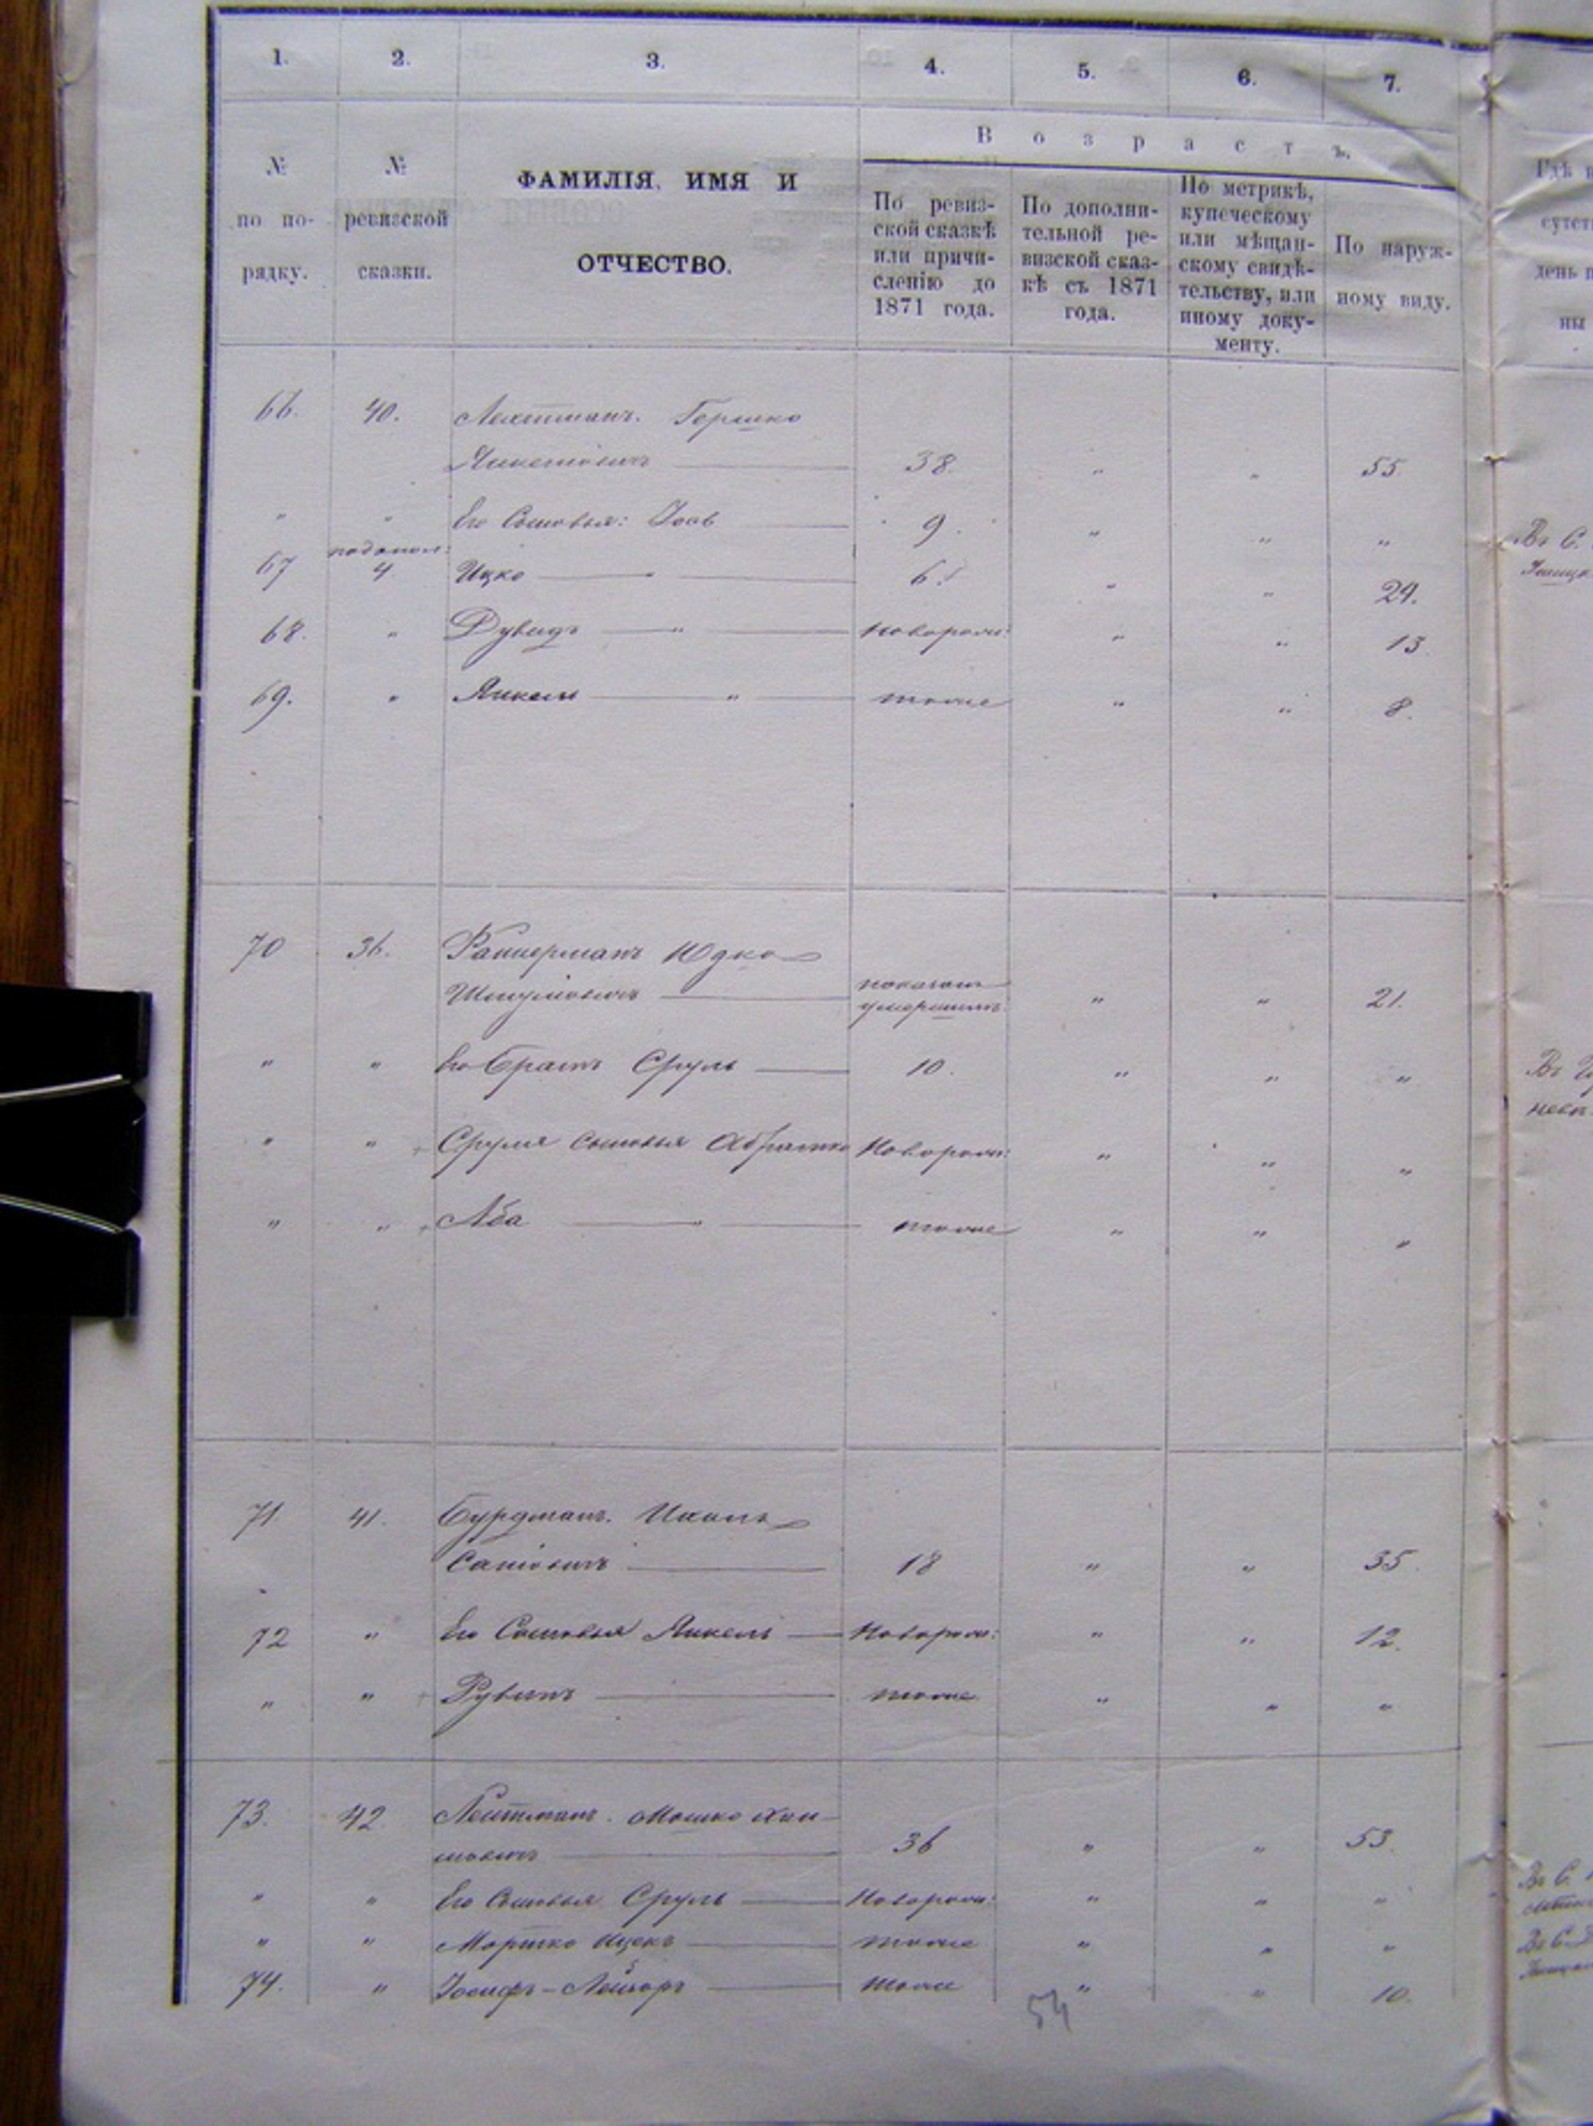 1. 2. 3. 4. 5. 6. 7.
В о з р а с т ъ.
№ по по-рядку.
№ ревизской сказки.
ФАМИЛІЯ, ИМЯ И
ОТЧЕСТВО.
По ревиз-
ской сказкѣ
или причи-
сленію до
1871 года.
По дополни-
тельной ре-
визской сказ-
кѣ съ 1871
года.
По метрикѣ,
купеческому
или мѣщан-
скому свидѣ-
тельству, или
иному доку-
менту.
По наруж-
ному виду.
66. 40. Лехтманъ. Гершко
Янкелiовичъ 38. " " 55
" " Его Сыновья: Iось 9. " " "
67 по допол: 4 Ицко " 6. " " 29.
68. " Рувидъ " Новорож: " " 13
69. " Янкель " тоже " " 8.
70 36. Юдко
показанъ
умершимъ " " 21.
" " Его братъ Сруль 10. " " "
" " Сруля сыновья Абрамко Новорож: " " "
" " Аба " тоже " " "
71 41. Бурдманъ.
18 " " 35.
72 " Его Сыновья Янкель Новорож: " " 12.
" " Рувинъ тоже " " "
73. 42. Мошко Хаи-
мовичъ 36 " " 53.
" " Его Сыновья Сруль Новорож: " " "
" " Мортко Ицекъ тоже " " "
74. " Iосифъ-Лейзоръ тоже " " 10.
54